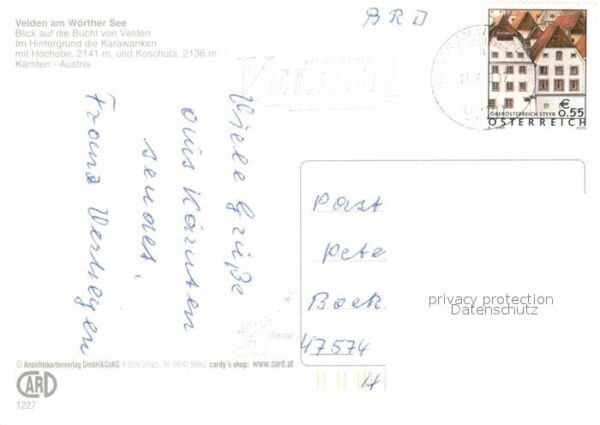 Velden am Wörther See
Blick auf die Bucht von Velden.
Im Hintergrund die Karawanken
mit Hochobir, 2141 m, und Koschuta, 2136 m.
Kärnten - Austria
BRD
VELDEN
€ 0.55
OBERÖSTERREICH STEYR
ÖSTERREICH
Viele Grüße
aus Kärnten
sendet.
Franz
Post
Pete
Boek
47574
H
privacy protection
Datenschutz
© Ansichtskartenverlag GmbH&CoKG
cardy's shop: www.card.at
CARD
1227